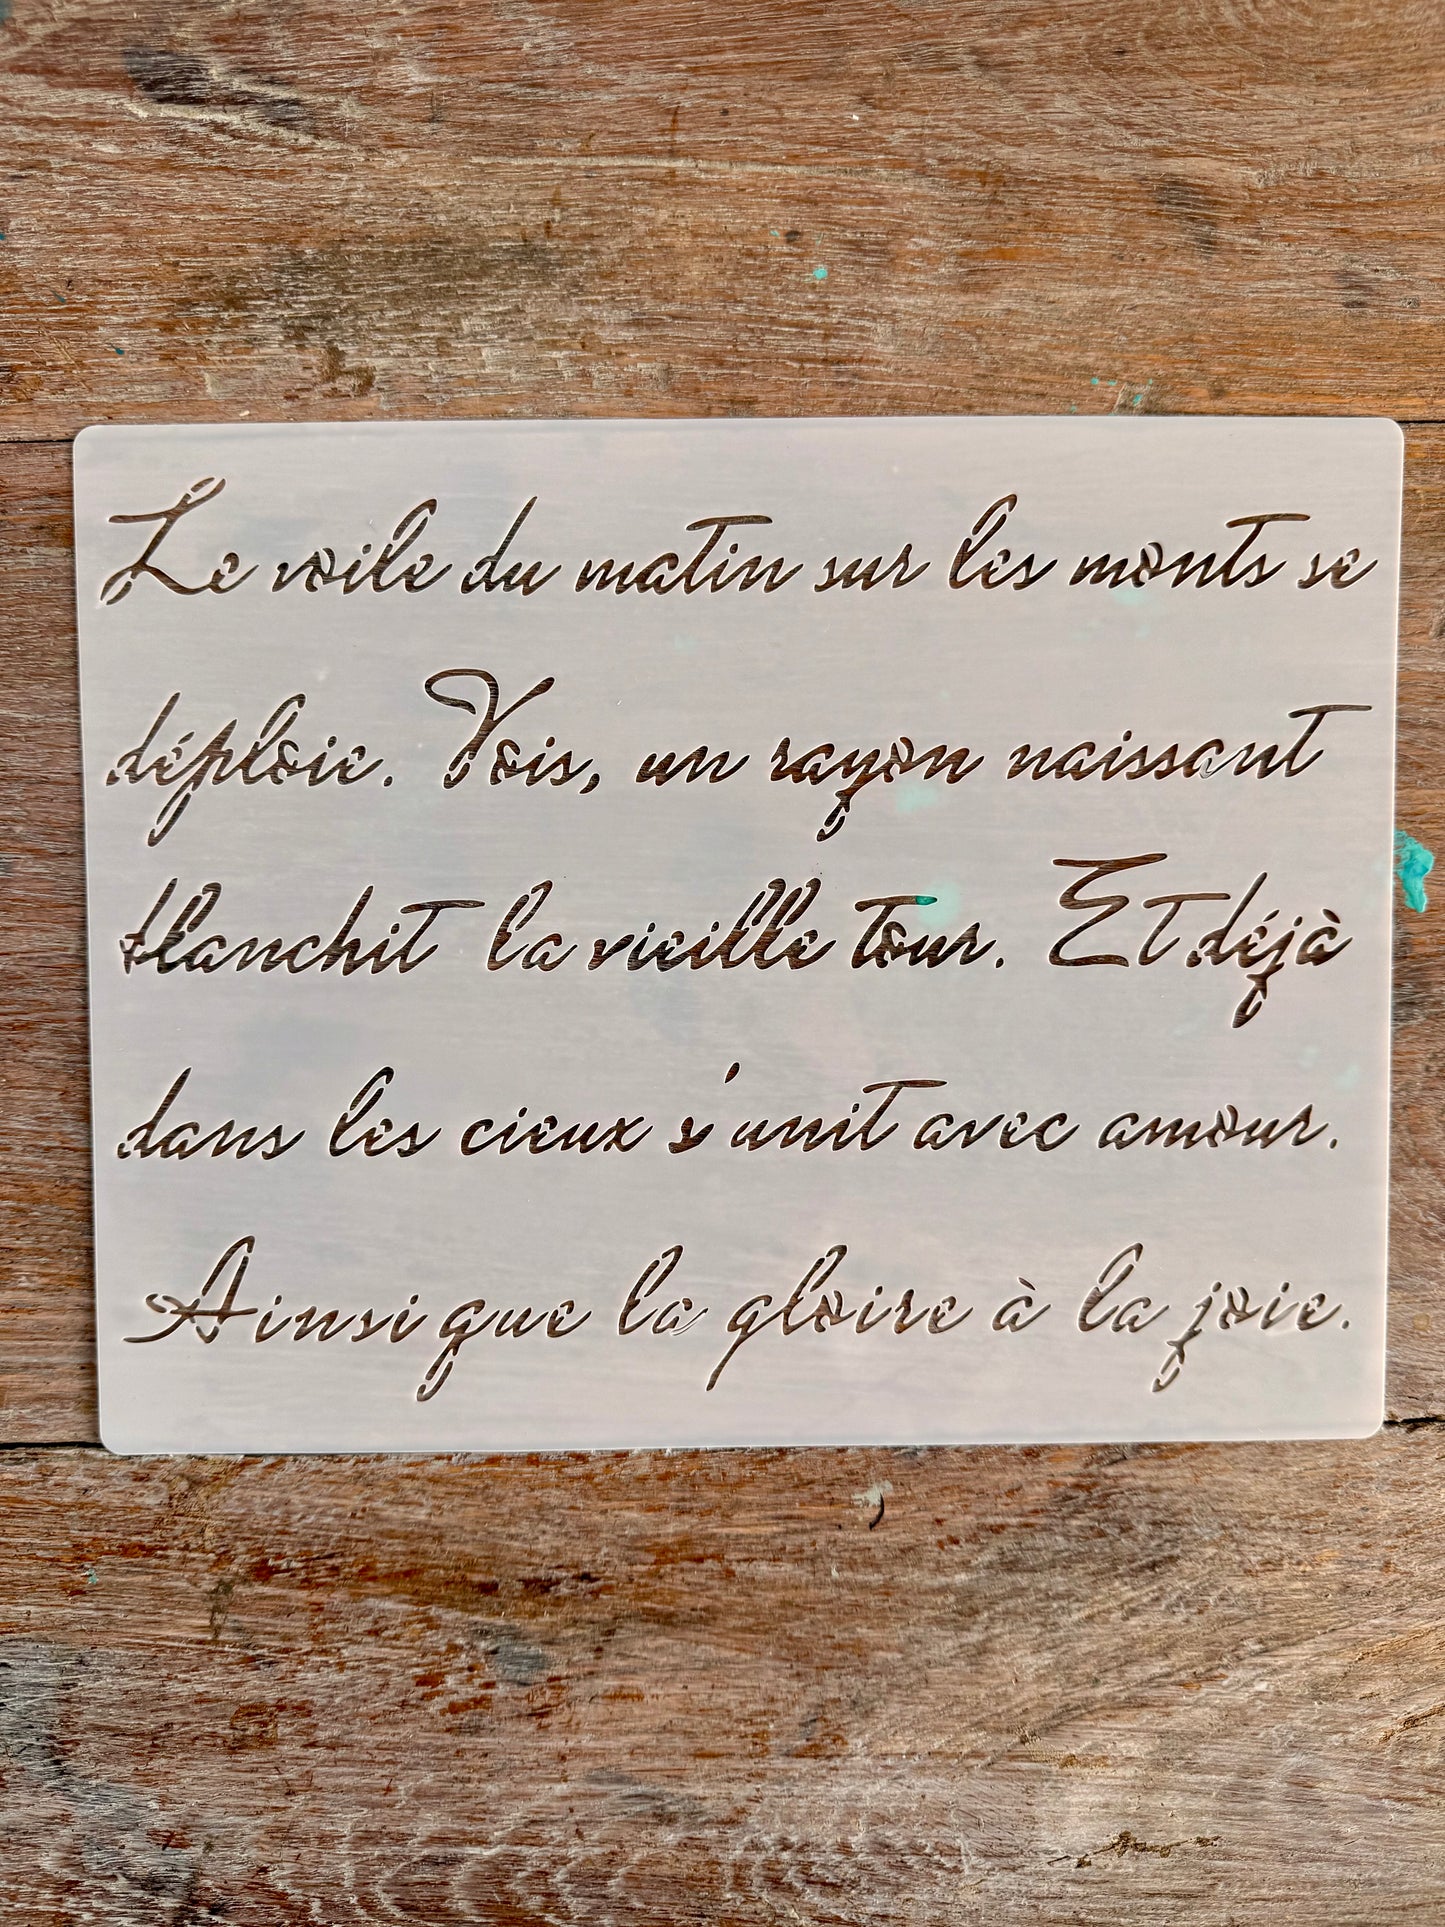 Le voile du matin sur les monts se
déploie. Vois, un rayon naissant
blanchit la vieille tour. Et déjà
dans les cieux s'unit avec amour.
Ainsi que la gloire à la joie.